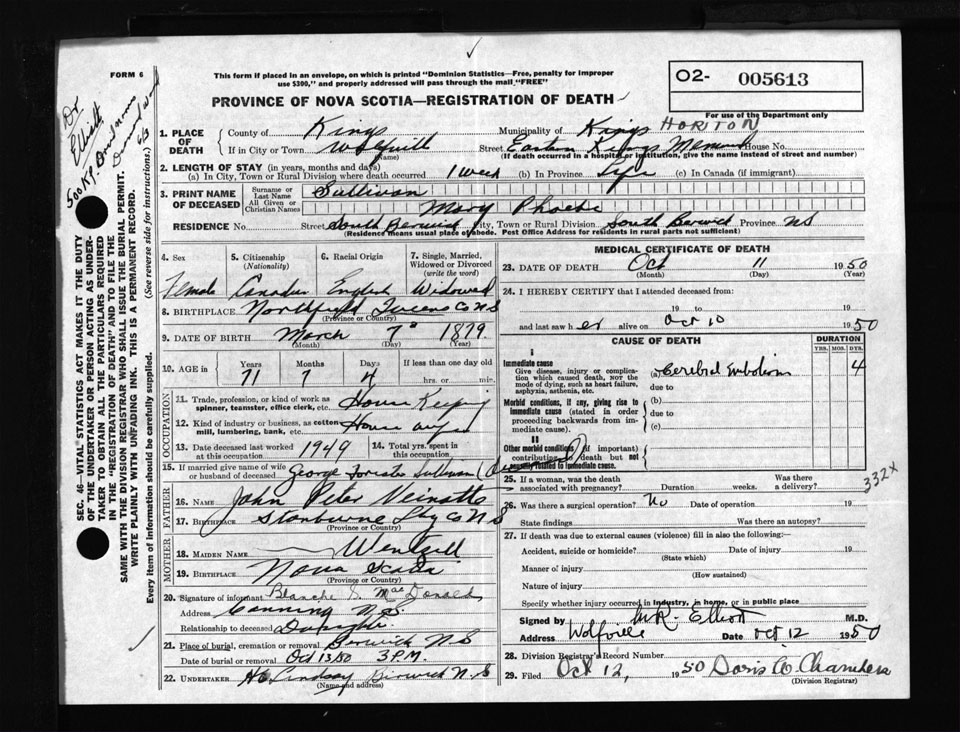 FORM 6
This form if placed in an envelope, on which is printed "Dominion Statistics—Free, penalty for improper
use $300," and properly addressed will pass through the mail "FREE"
O2- 005613
PROVINCE OF NOVA SCOTIA—REGISTRATION OF DEATH
For use of the Department only
Dr
Elliott
500 KP.
SEC. 46 VITAL STATISTICS ACT MAKES IT THE DUTY
OF THE UNDERTAKER OR PERSON ACTING AS UNDER-
TAKER TO OBTAIN ALL THE PARTICULARS REQUIRED
IN THE "REGISTRATION OF DEATH" AND TO FILE THE
SAME WITH THE DIVISION REGISTRAR WHO SHALL ISSUE THE BURIAL PERMIT.
WRITE PLAINLY WITH UNFADING INK. THIS IS A PERMANENT RECORD.
Every item of information should be carefully supplied. (See reverse side for instructions.)
1. PLACE OF DEATH
County of Kings Municipality of Kings HORTON
If in City or Town Wolfville (Name) Street Eastern Kings Memorial House No.
(If death occurred in a hospital or institution, give the name instead of street and number)
2. LENGTH OF STAY (in years, months and days)
(a) In City, Town or Rural Division where death occurred 1 week (b) In Province Life (c) In Canada (if immigrant)
3. PRINT NAME OF DECEASED
Surname or Last Name Sullivan
All Given or Christian Names Mary Phoebe
RESIDENCE No. Street South Berwick City, Town or Rural Division South Berwick Province NS
(Residence means usual place of abode. Post Office Address for residents in rural parts not sufficient)
4. Sex Female
5. Citizenship (Nationality) Canadian
6. Racial Origin English
7. Single, Married, Widowed or Divorced (write the word) Widowed
8. BIRTHPLACE Northfield Queens Co N S
(Province or Country)
9. DATE OF BIRTH March 7 1879
(Month) (Day) (Year)
10. AGE in Years 71 Months 7 Days 4 If less than one day old hrs. or min.
OCCUPATION
11. Trade, profession, or kind of work as spinner, teamster, office clerk, etc. House Keeping
12. Kind of industry or business, as cotton mill, lumbering, bank, etc. House
13. Date deceased last worked at this occupation 1949
14. Total yrs. spent in this occupation
15. If married give name of wife or husband of deceased George Forester Sullivan (Deceased)
FATHER
16. NAME John Peter Veinotte
17. BIRTHPLACE Stanburne Lbg Co N S
(Province or Country)
MOTHER
18. MAIDEN NAME Wentzell
19. BIRTHPLACE Nova Scotia
(Province or Country)
20. Signature of informant Blanche S. MacDonald
Address Canning N.S.
Relationship to deceased Daughter
21. Place of burial, cremation or removal Berwick N S
Date of burial or removal Oct 13/50 3 P.M.
22. UNDERTAKER H C Lindsay Berwick N.S
(Name and address)
MEDICAL CERTIFICATE OF DEATH
23. DATE OF DEATH Oct 11 1950
(Month) (Day) (Year)
24. I HEREBY CERTIFY that I attended deceased from:
19 to 19
and last saw her alive on Oct 10 1950
CAUSE OF DEATH
DURATION
YRS. MOS. DYS.
I
Immediate cause
Give disease, injury or complication which caused death, not the mode of dying, such as heart failure, asphyxia, asthenia, etc.
(a) Cerebral Embolism 4
due to
Morbid conditions, if any, giving rise to immediate cause (stated in order proceeding backwards from immediate cause).
(b)
due to
(c)
II
Other morbid conditions (if important) contributing to death but not causally related to immediate cause.
332X
25. If a woman, was the death associated with pregnancy? Duration weeks. Was there a delivery?
26. Was there a surgical operation? No Date of operation 19
State findings Was there an autopsy?
27. If death was due to external causes (violence) fill in also the following:
Accident, suicide or homicide? Date of injury 19
(State which)
Manner of injury
(How sustained)
Nature of injury
Specify whether injury occurred in industry, in home, or in public place
Signed by M R. Elliott M.D.
Address Wolfville Date Oct 12 1950
28. Division Registrar's Record Number
29. Filed Oct 12, 1950 Doris Chambers
(Division Registrar)